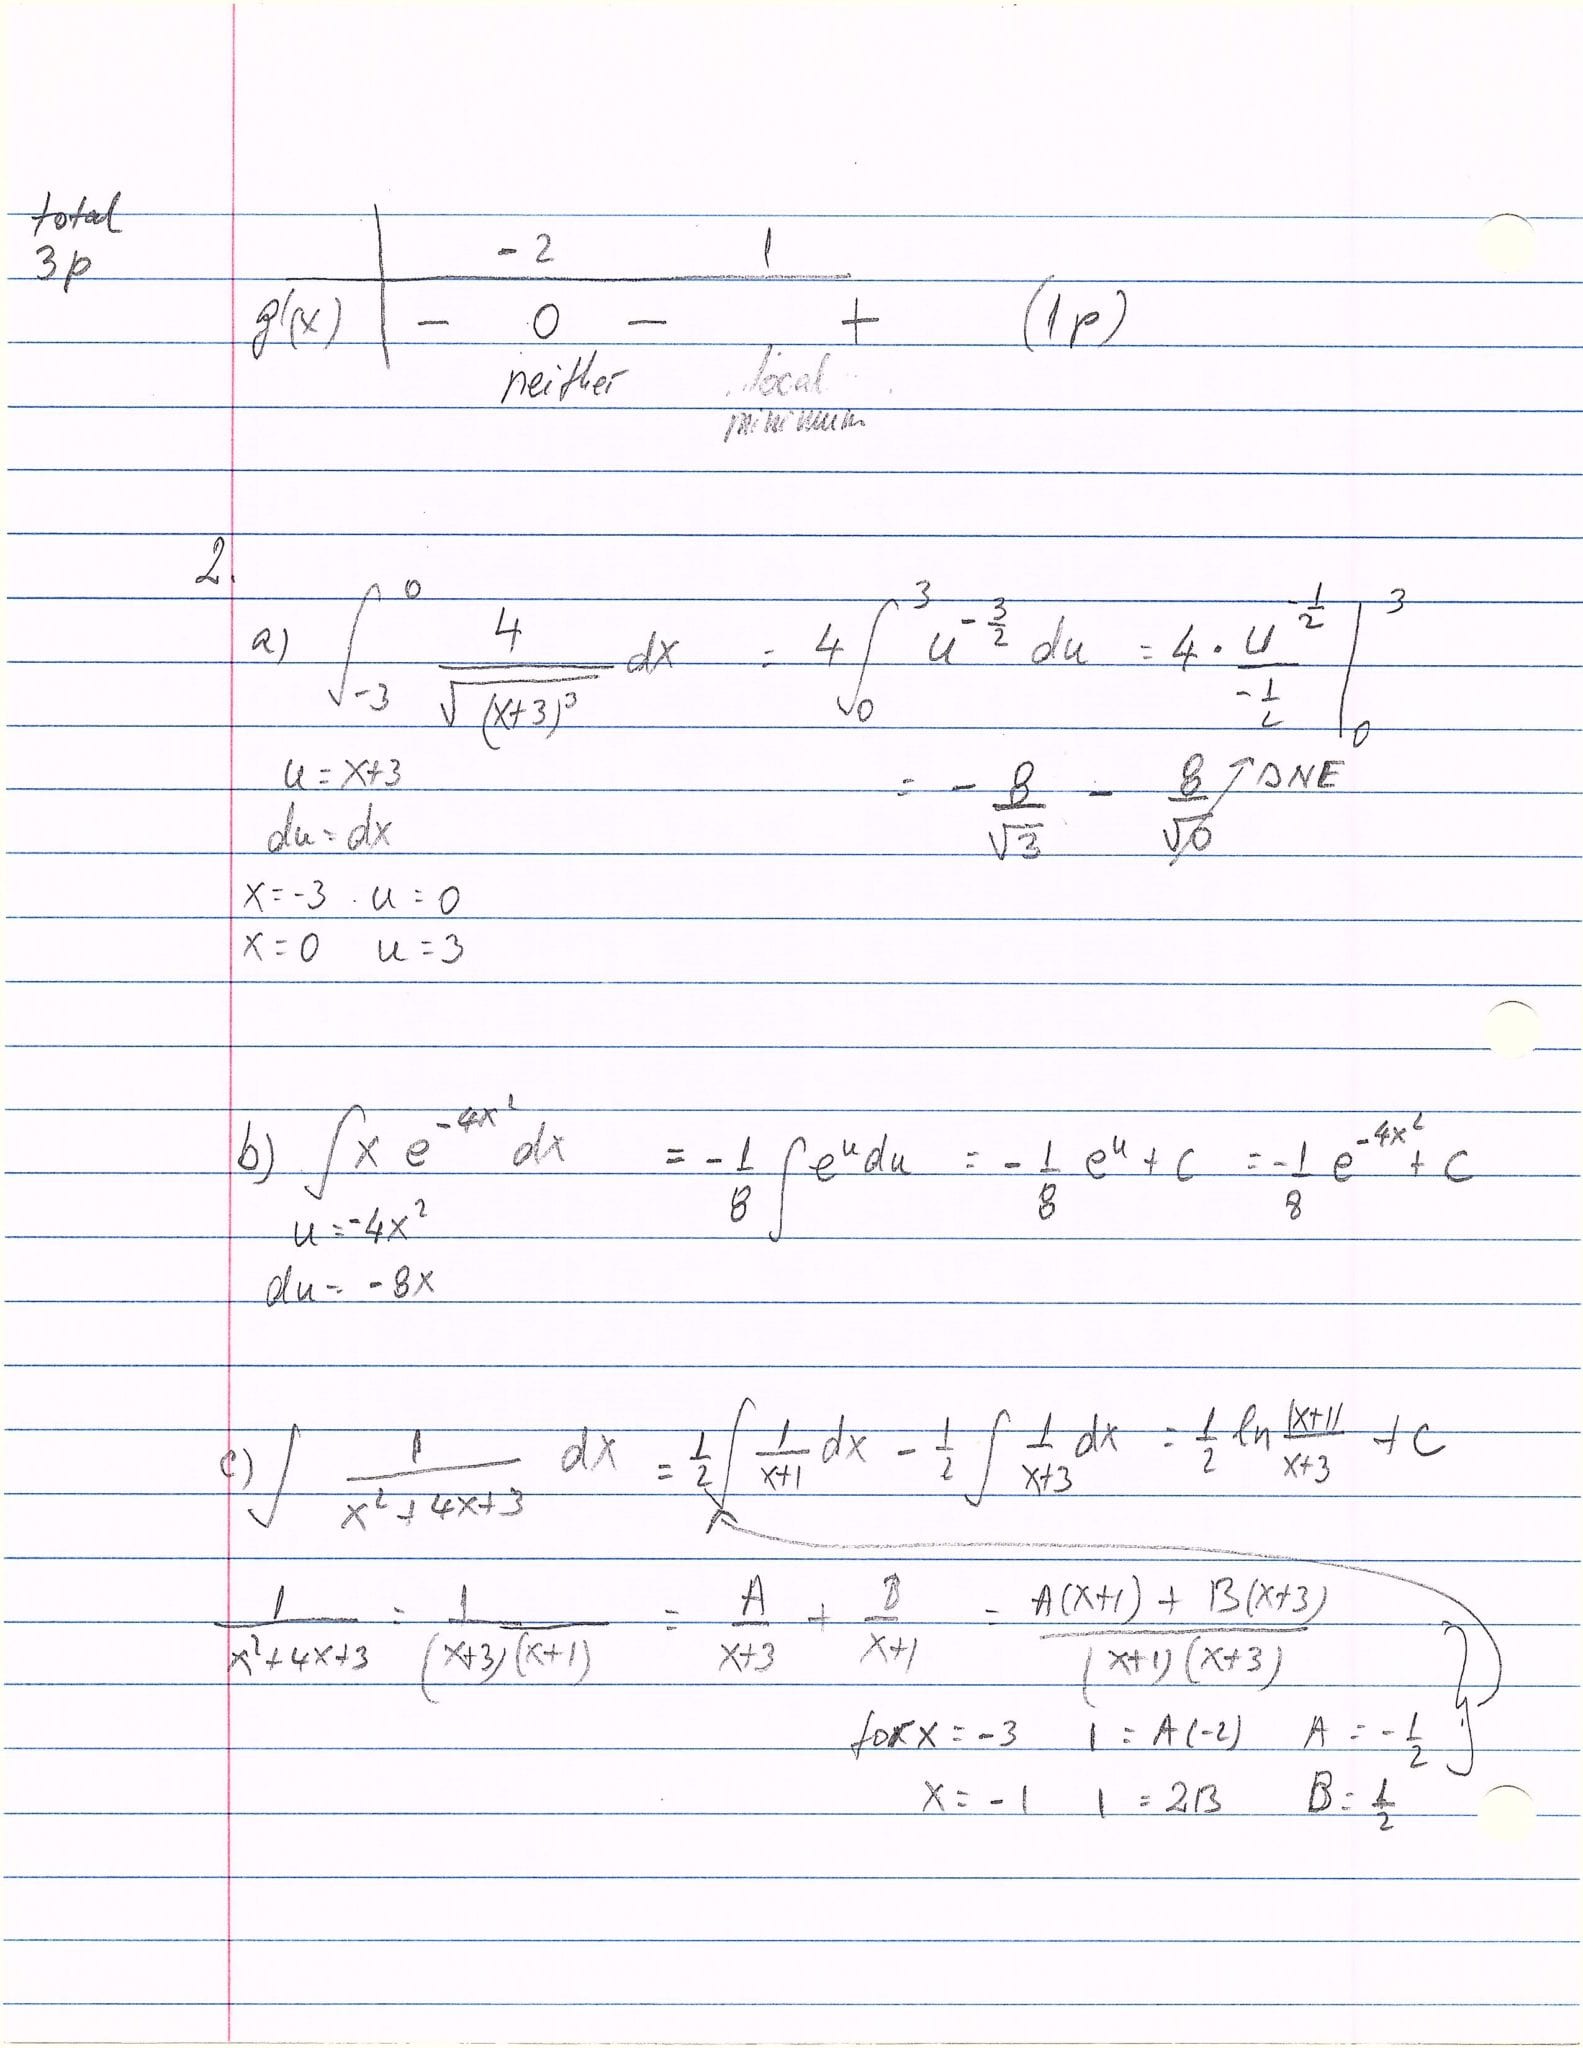 total
3p
-2 1
g'(x) - 0 - + (1p)
neither local minimum
2.
a) ∫_{-3}^{0} 4/√((x+3)³) dx = 4 ∫_{0}^{3} u^{-3/2} du = 4 · u^{-1/2}/(-1/2) |_{0}^{3}
u = x+3 = - 8/√3 - 8/√0 ↗ DNE
du = dx
x = -3 . u = 0
x = 0 u = 3
b) ∫ x e^{-4x²} dx = -1/8 ∫ e^u du = -1/8 e^u + C = -1/8 e^{-4x²} + C
u = -4x²
du = -8x
c) ∫ 1/(x²+4x+3) dx = 1/2 ∫ 1/(x+1) dx - 1/2 ∫ 1/(x+3) dx = 1/2 ln |x+1|/x+3 + C
1/(x²+4x+3) = 1/((x+3)(x+1)) = A/(x+3) + B/(x+1) = (A(x+1) + B(x+3))/((x+1)(x+3))
for x = -3 1 = A(-2) A = -1/2
x = -1 1 = 2B B = 1/2